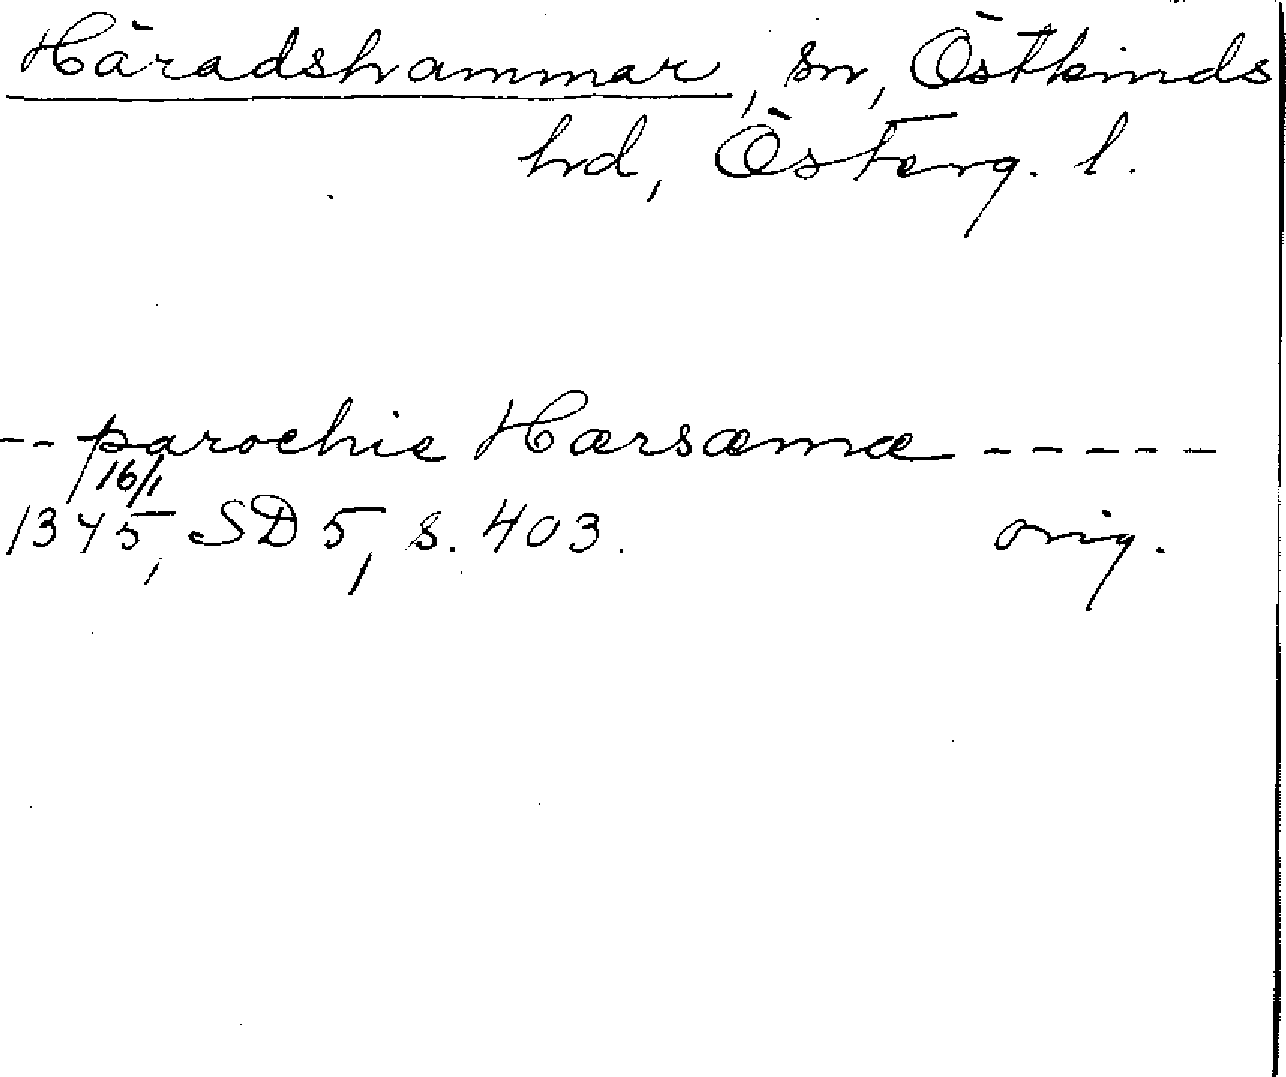 Häradshammar, sn, Östkinds
hd, Österg. l.
-- parochie Hærsæmæ -----
16/1
1345, SD 5, s. 403. orig.